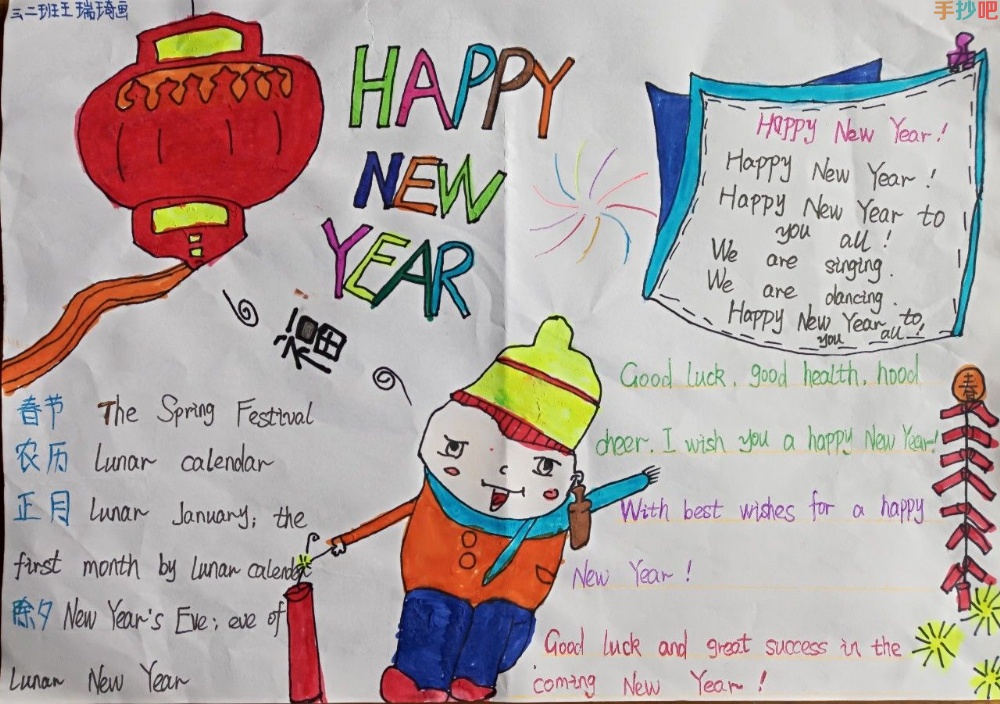 三二班王瑞琦画
手抄吧
HAPPY
NEW
YEAR
福
Happy New Year!
Happy New Year!
Happy New Year to
you all!
We are singing.
We are dancing.
Happy New Year to
you all!
春节 The Spring Festival
农历 lunar calendar
正月 lunar January; the
first month by lunar calendar
除夕 New Year's Eve; eve of
Lunar New Year
Good luck, good health, hood
cheer. I wish you a happy New Year!
With best wishes for a happy
New Year!
Good luck and great success in the
coming New Year!
春